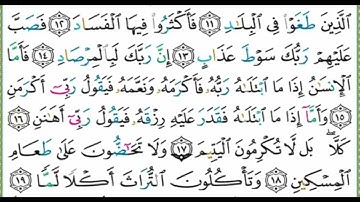 ٱلَّذِينَ طَغَوْا۟ فِى ٱلْبِلَـٰدِ ١١ فَأَكْثَرُوا۟ فِيهَا ٱلْفَسَادَ ١٢ فَصَبَّ
عَلَيْهِمْ رَبُّكَ سَوْطَ عَذَابٍ ١٣ إِنَّ رَبَّكَ لَبِٱلْمِرْصَادِ ١٤ فَأَمَّا
ٱلْإِنسَـٰنُ إِذَا مَا ٱبْتَلَىٰهُ رَبُّهُۥ فَأَكْرَمَهُۥ وَنَعَّمَهُۥ فَيَقُولُ رَبِّىٓ أَكْرَمَنِ
١٥ وَأَمَّآ إِذَا مَا ٱبْتَلَىٰهُ فَقَدَرَ عَلَيْهِ رِزْقَهُۥ فَيَقُولُ رَبِّىٓ أَهَـٰنَنِ ١٦
كَلَّا ۖ بَل لَّا تُكْرِمُونَ ٱلْيَتِيمَ ١٧ وَلَا تَحَـٰٓضُّونَ عَلَىٰ طَعَامِ
ٱلْمِسْكِينِ ١٨ وَتَأْكُلُونَ ٱلتُّرَاثَ أَكْلًا لَّمًّا ١٩